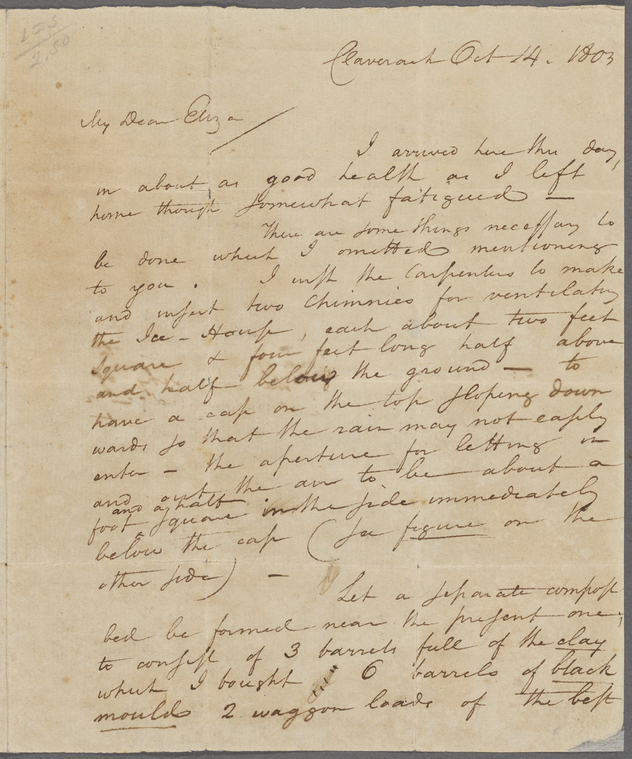 155
2.50
Claverack Oct 14. 1803
My Dear Eliza
I arrived here this day,
in about as good health as I left
home though somewhat fatigued —
There are some things necessary to
be done which I omitted mentioning
to you. I wish the Carpenters to make
and insert two Chimnies for ventilating
the Ice-House, each about two feet
square & four feet long half above
and half below the ground — to
have a cap on the top sloping down
wards so that the rain may not easily
enter — the aperture for letting in
and out the air to be about a
and a half
foot square in the side immediately
below the cap (see figure on the
other side) —
Let a separate compost
bed be formed near the present one;
to consist of 3 barrels full of the clay
which I bought 6 barrels of black
mould 2 waggon loads of the best